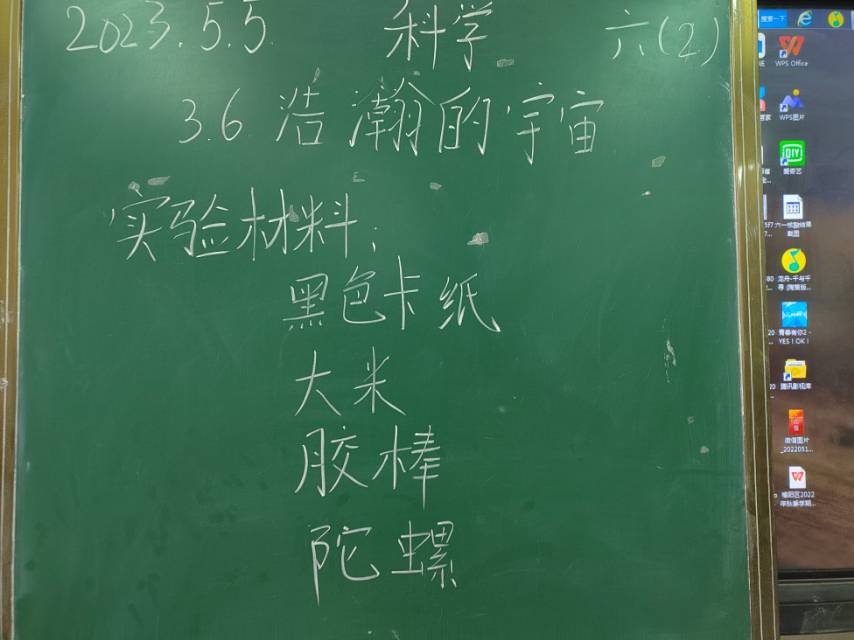 2023.5.5 科学 六(2)
3.6 浩瀚的宇宙
实验材料:
黑色卡纸
大米
胶棒
陀螺
搜索一下
WPS Office
WPS图片
爱奇艺
YES!OK!
腾讯影视库
微信图片
_2022051...
榆阳区2022
年秋季学期...